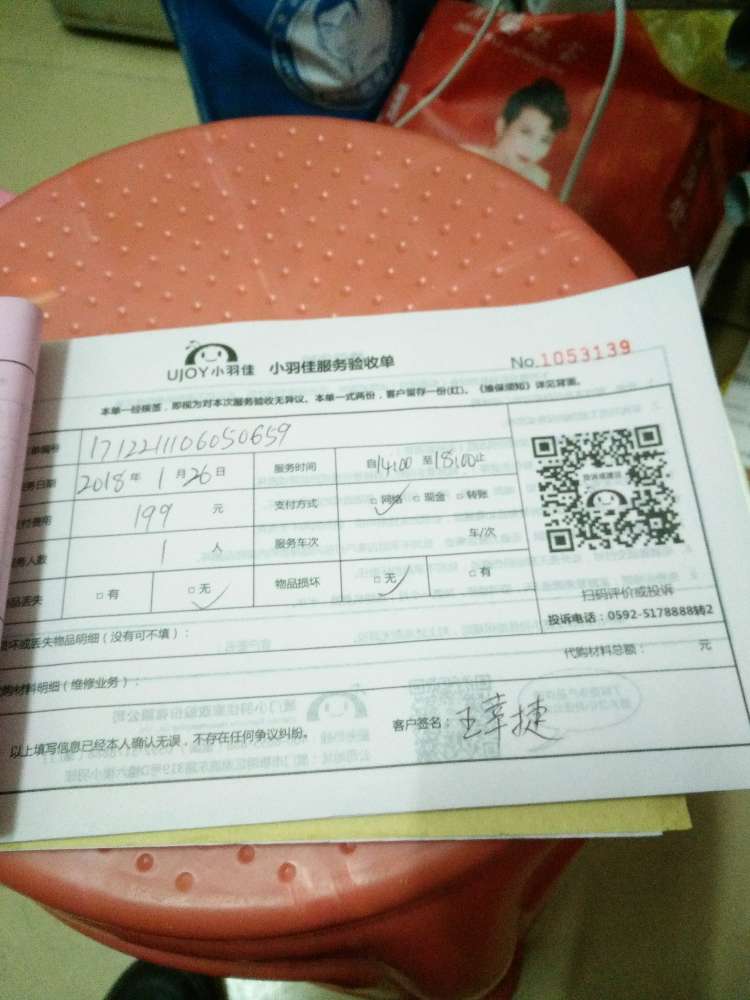 UJOY小羽佳 小羽佳服务验收单 No.1053139
本单一经接签，即视为对本次服务验收无异议。本单一式两份，客户留存一份(红)。《维保须知》详见背面。
单编号 1712211106050659
务日期 2018年1月26日 服务时间 自14:00至18:00止
付费用 199 元 支付方式 □网络 □现金 □转账
务人数 1 人 服务车次 车/次
品丢失 □有 □无 物品损坏 □无 □有
扫码评价或投诉
投诉电话：0592-5178888转2
损坏或丢失物品明细（没有可不填）：
代购材料总额： 元
购材料明细（维修业务）：
以上填写信息已经本人确认无误，不存在任何争议纠纷。 客户签名：王 捷